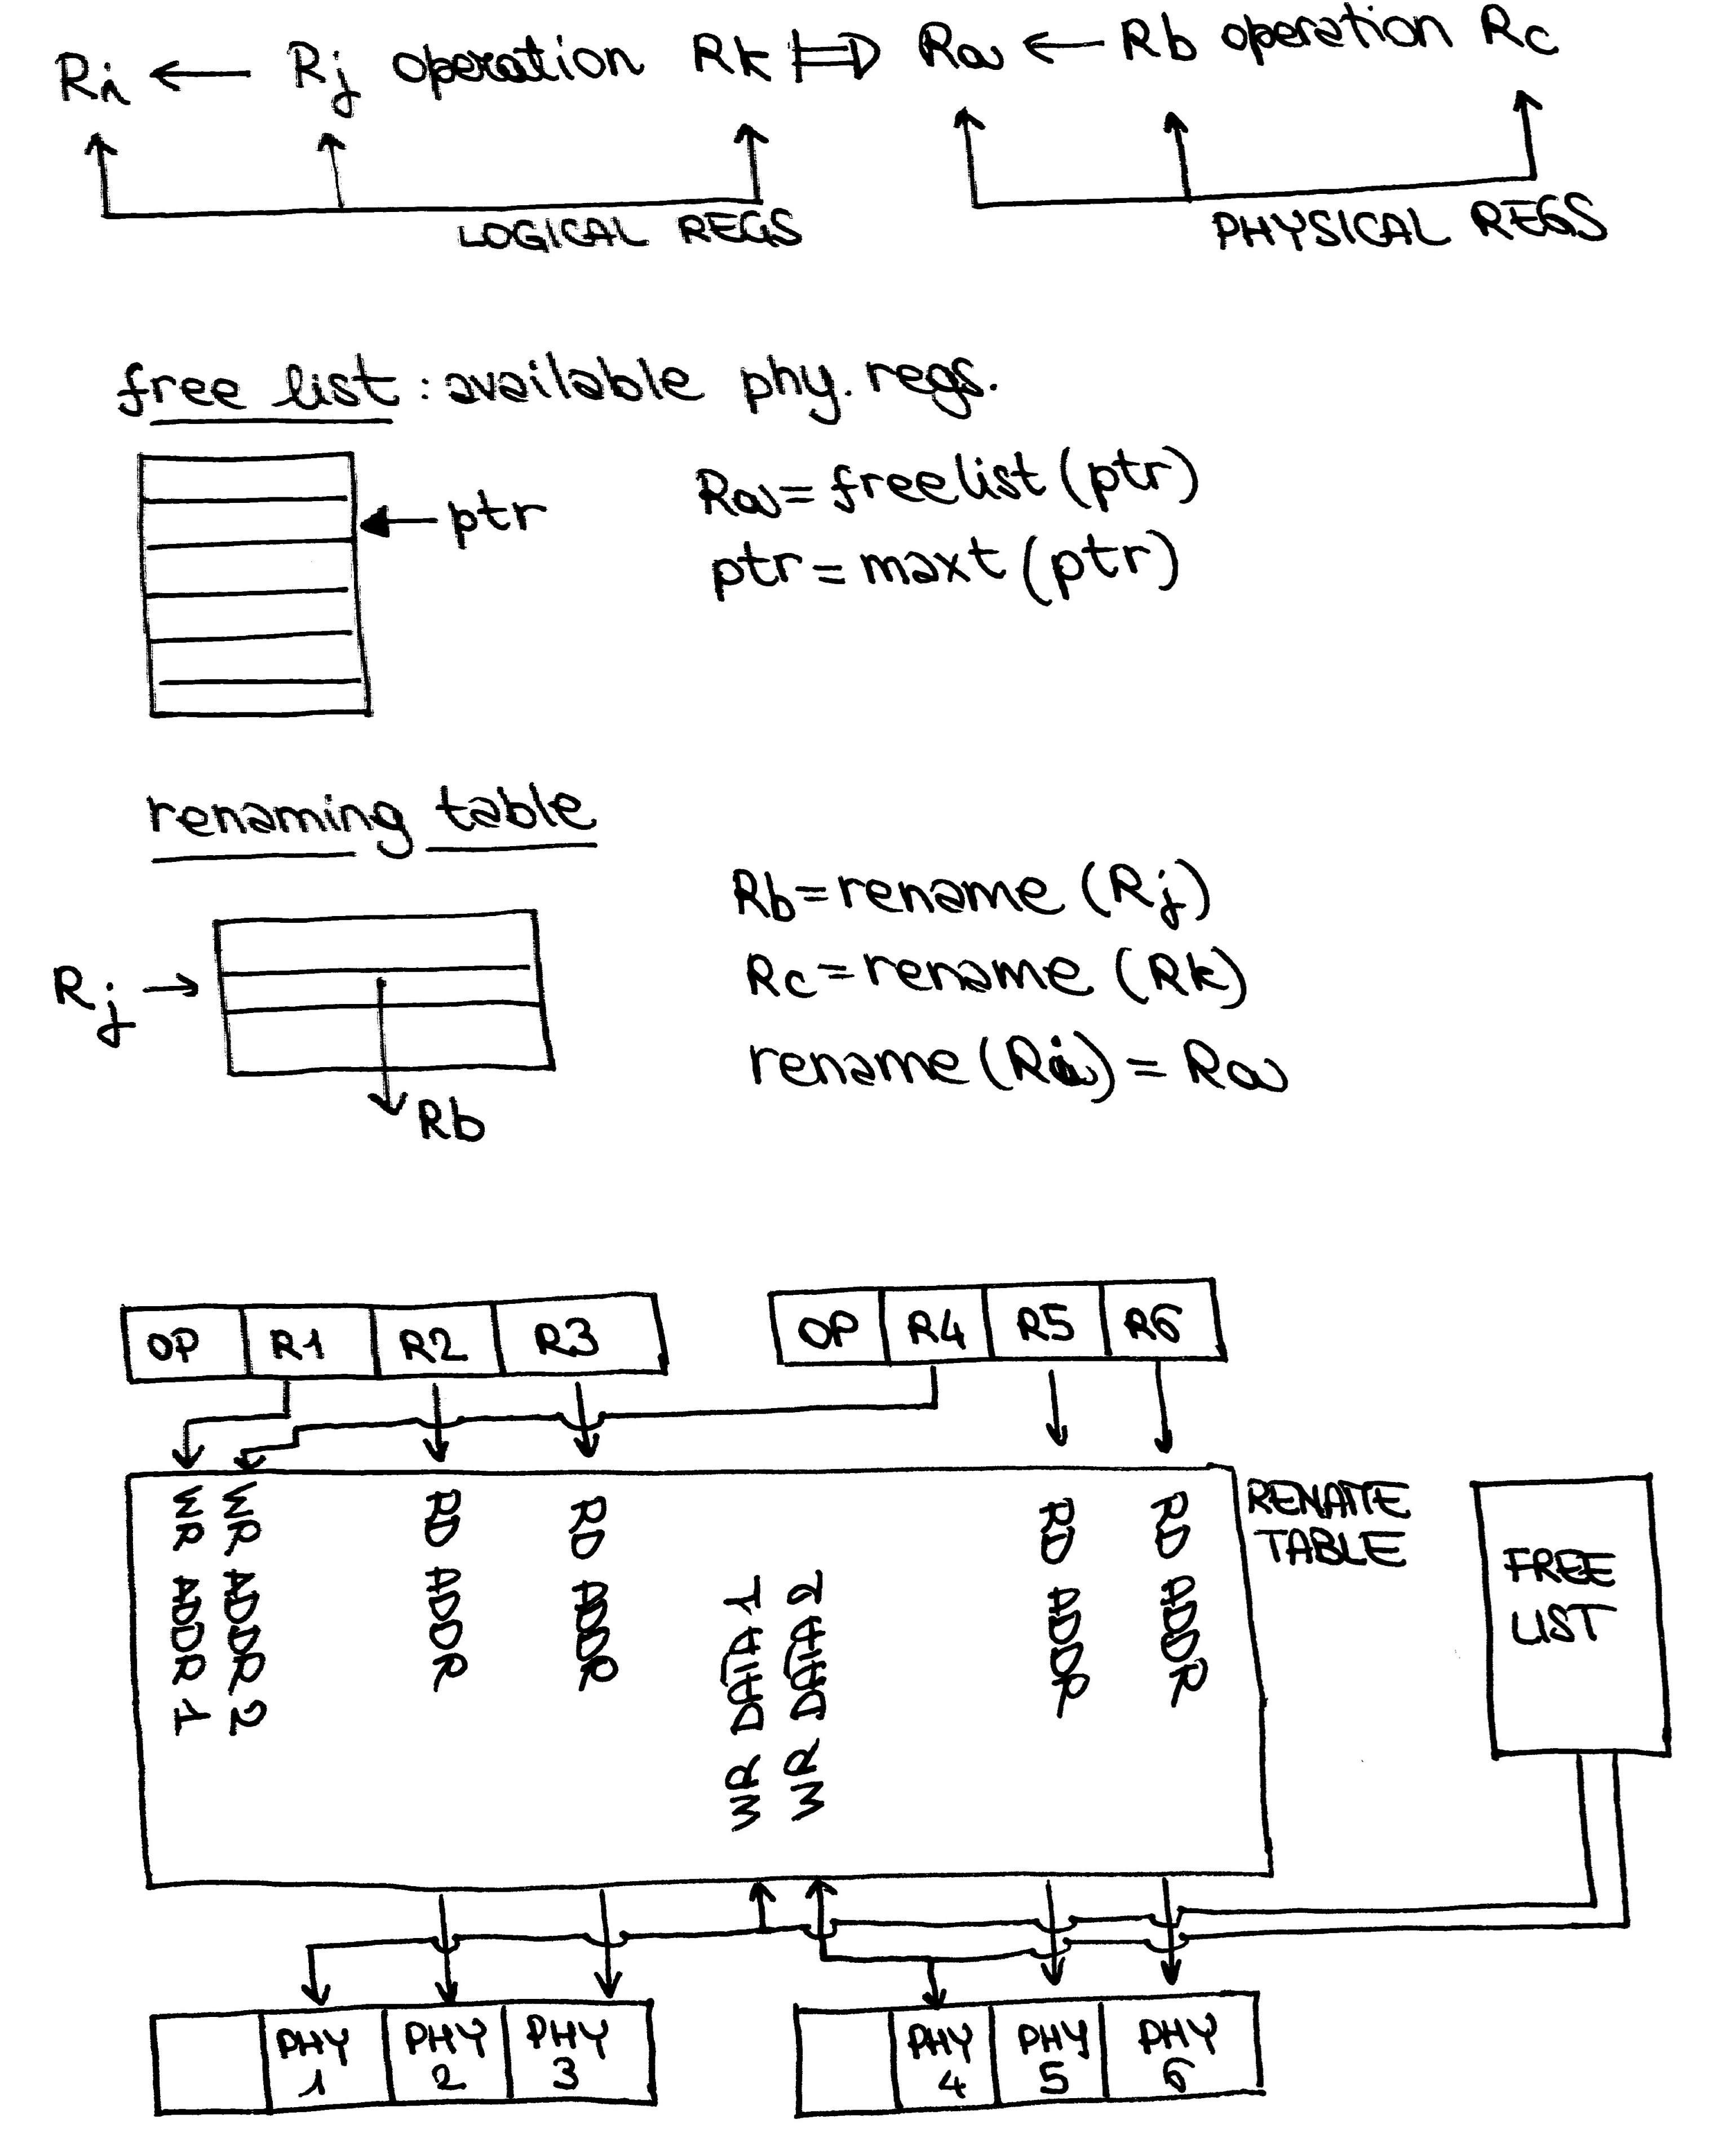 Ri ← Rj operation Rk ⟹ Ra ← Rb operation Rc
LOGICAL REGS
PHYSICAL REGS
free list : available phy. regs.
← ptr
Ra = freelist (ptr)
ptr = maxt (ptr)
renaming table
Rj →
Rb
Rb = rename (Rj)
Rc = rename (Rk)
rename (Ri) = Ra
OP R1 R2 R3
OP R4 R5 R6
WR ADDR 1
WR ADDR 2
RD ADDR
RD ADDR
WR DATA 1
WR DATA 2
RD ADDR
RD ADDR
RENAME
TABLE
FREE
LIST
PHY 1
PHY 2
PHY 3
PHY 4
PHY 5
PHY 6